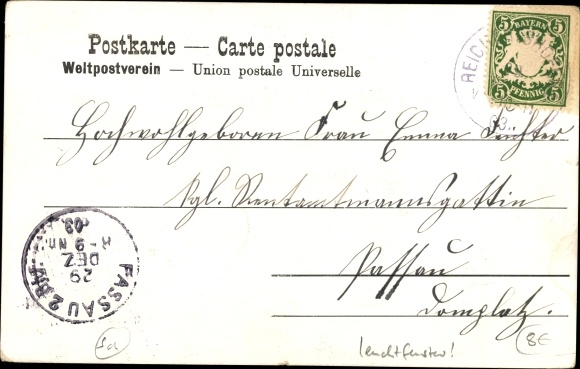 Postkarte — Carte postale
Weltpostverein — Union postale Universelle
5 BAYERN 5
5 PFENNIG 5
REICH
03.
Hochwohlgeboren Frau Emma
Kgl. Rentamtmannsgattin
Passau
Domplatz.
PASSAU 2 Bhf.
29
DEZ
8-9 NM.
03.
leuchtfenster!
8€